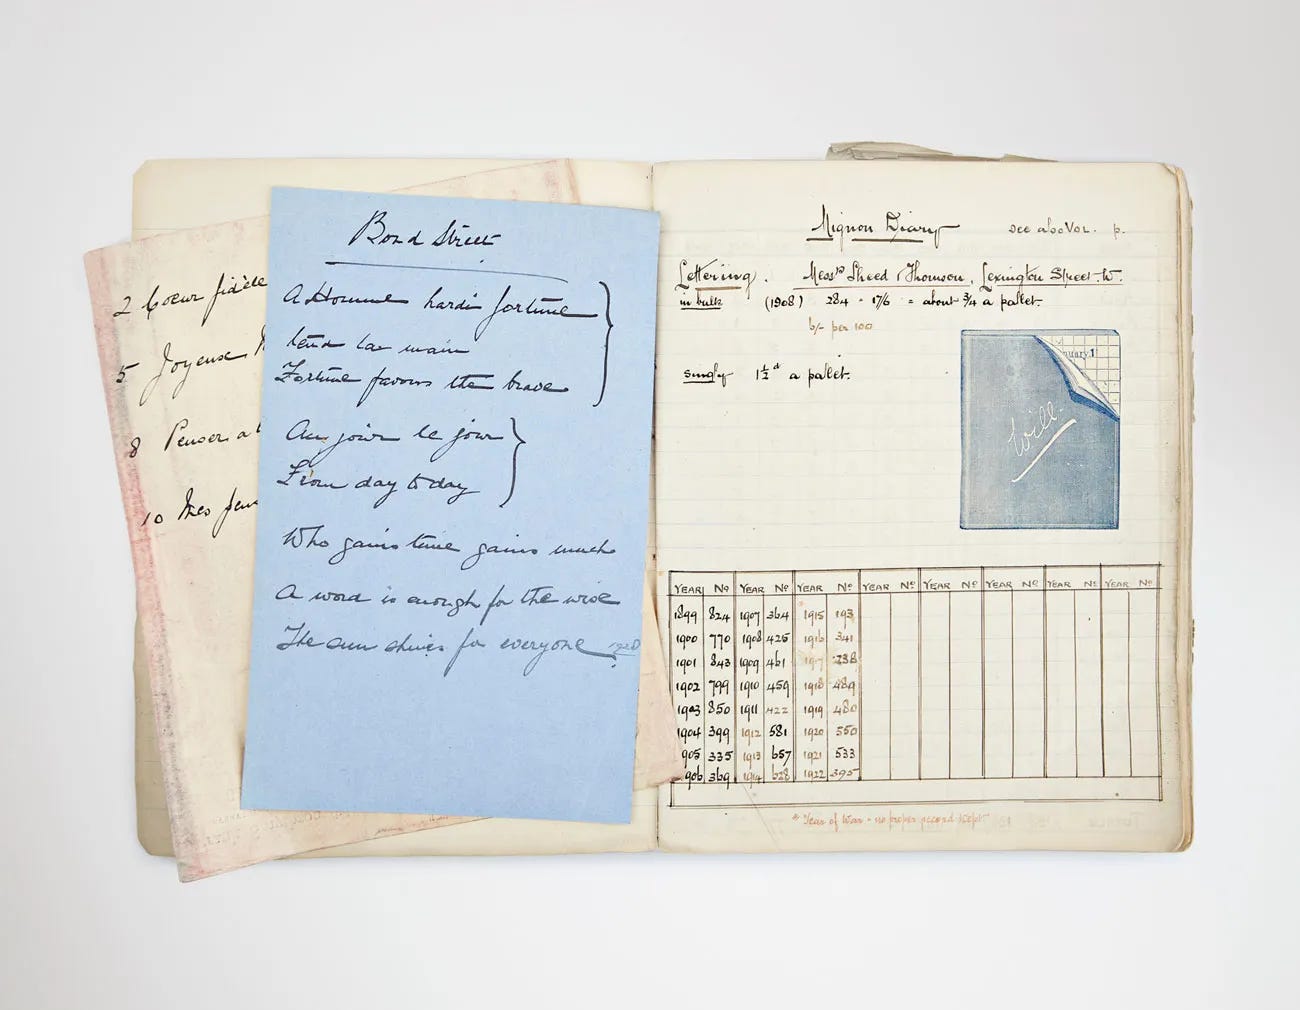 2 Coeur fidèle
5 Joyeuse
8 Penser a
10 Mes
Bond Street
A Homme hardi fortune
tend la main
Fortune favors the brave
Au jour le jour
From day to day
Who gains time gains much
A word is enough for the wise
The sun shines for everyone 1928
Mignon Diary see also Vol. p.
Lettering. Messrs Sheed & Thomson, Lexington Street. W.
in bulk (1908) 284 = 17/6 = about 3/4 a pallet.
6/- per 100
singly 1½d a pallet.
nuary.1
Will.
YEAR No YEAR No YEAR No YEAR No YEAR No YEAR No YEAR No YEAR No
1899 824 1907 364 1915 193
1900 770 1908 425 1916 341
1901 843 1909 461 1917 238
1902 799 1910 459 1918 489
1903 850 1911 422 1919 480
1904 399 1912 581 1920 550
1905 335 1913 657 1921 533
1906 369 1914 628 1922 395
* Year of War - no proper record kept